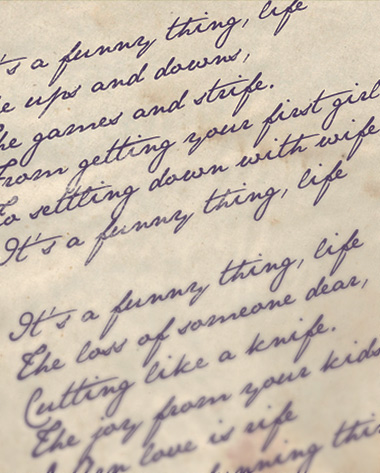 a funny thing, life
ups and downs,
games and strife.
From getting your first girl
To settling down with wife
It's a funny thing, life
It's a funny thing, life
The loss of someone dear,
Cutting like a knife.
The joy from your kids
love is rife